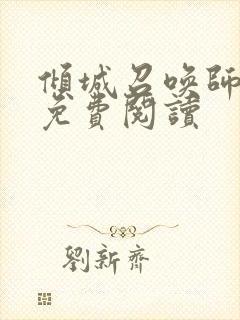 傾城召喚師
免費閱讀
劉新齊